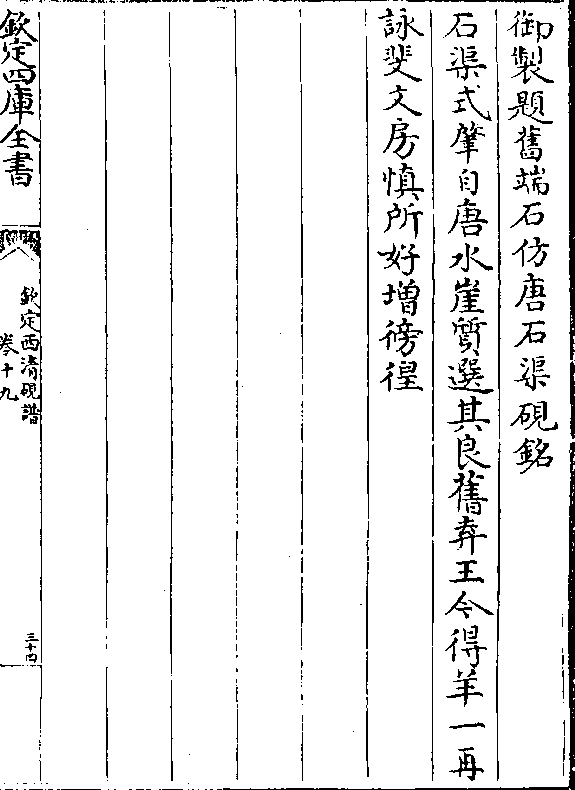 御製題舊端石仿唐石渠硯銘
石渠式肇自唐水崖質選其良舊弆王今得羊一再
詠斐文房慎所好增徬徨
欽定四庫全書
欽定西清硯譜
卷十九
三十四